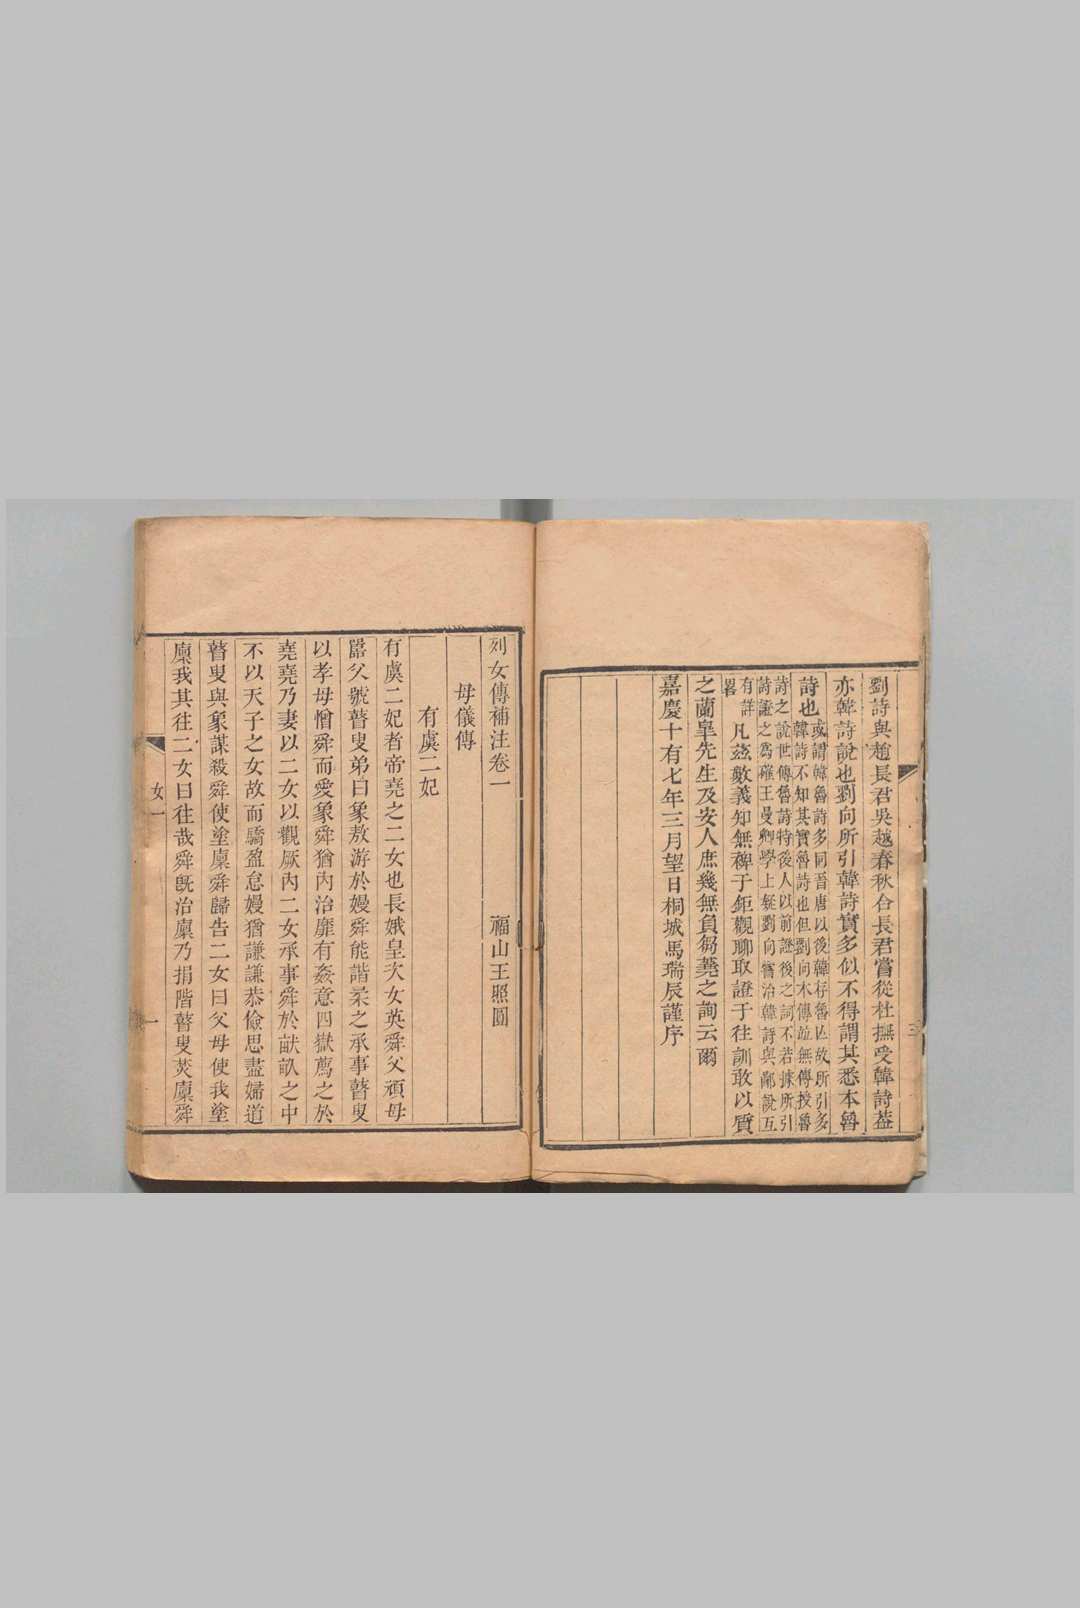 劉詩與趙長君吳越春秋合長君嘗從杜撫受韓詩葢
亦韓詩說也劉向所引韓詩實多似不得謂其悉本魯
詩也
或謂韓魯詩多同晉唐以後韓存魯亾故所引多
韓詩不知其實魯詩也但劉向本傳竝無傳授魯
詩之說世傳魯詩特後人以前證後之詞不若據所引
詩證之爲確王曼卿學上疑劉向嘗治韓詩與鄙說互
有詳
畧
凡兹數義知無稗于鉅觀聊取證于往訓敢以質
之蘭皐先生及安人庶幾無負芻蕘之詢云爾
嘉慶十有七年三月望日桐城馬瑞辰謹序
三
列女傳補注卷一 福山王照圓
母儀傳
有虞二妃
有虞二妃者帝堯之二女也長娥皇次女英舜父頑母
嚚父號瞽叟弟曰象敖游於嫚舜能諧柔之承事瞽叟
以孝母憎舜而愛象舜猶內治靡有姦意四嶽薦之於
堯堯乃妻以二女以觀厥內二女承事舜於畎畝之中
不以天子之女故而驕盈怠嫚猶謙謙恭儉思盡婦道
瞽叟與象謀殺舜使塗廩舜歸告二女曰父母使我塗
廩我其往二女曰往哉舜旣治廩乃捐階瞽叟焚廩舜
女一
一